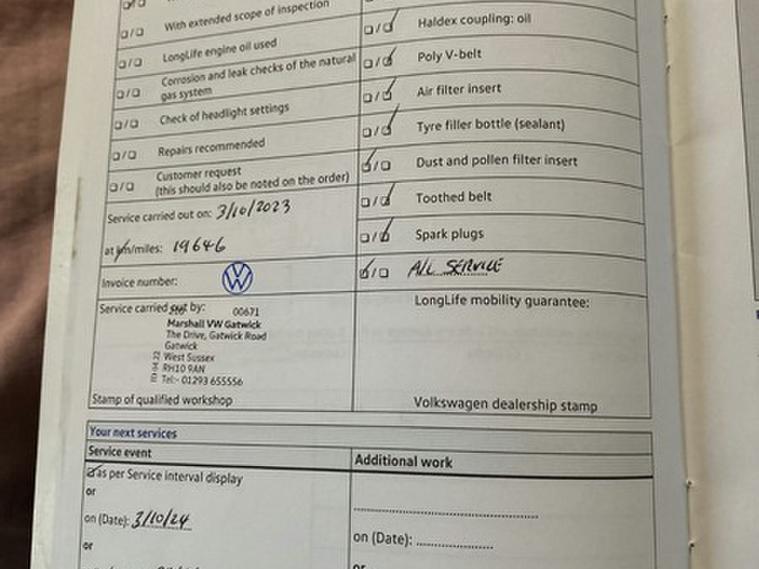 With extended scope of inspection
LongLife engine oil used
Corrosion and leak checks of the natural
gas system
Check of headlight settings
Repairs recommended
Customer request
(this should also be noted on the order)
Service carried out on: 3/10/2023
at km/miles: 19646
Invoice number:
Service carried out by:
00671
Marshall VW Gatwick
The Drive, Gatwick Road
Gatwick
West Sussex
RH10 9AN
Tel:- 01293 655556
Stamp of qualified workshop
Haldex coupling: oil
Poly V-belt
Air filter insert
Tyre filler bottle (sealant)
Dust and pollen filter insert
Toothed belt
Spark plugs
A/C SERVICE
LongLife mobility guarantee:
Volkswagen dealership stamp
Your next services
Service event
as per Service interval display
or
on (Date): 3/10/24
or
Additional work
on (Date):
or